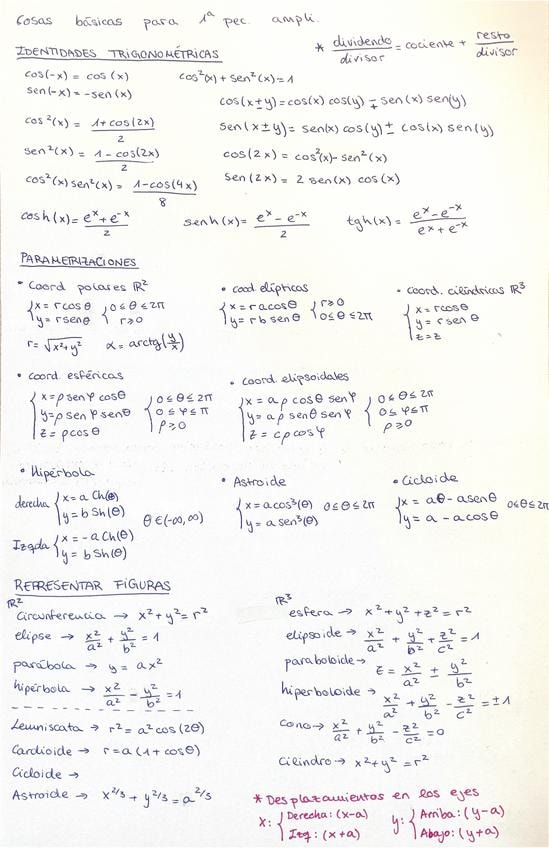 Cosas básicas para 1ª pec. ampli.
IDENTIDADES TRIGONOMÉTRICAS
* dividendo/divisor = cociente + resto/divisor
cos(-x) = cos(x)    cos²(x) + sen²(x) = 1
sen(-x) = -sen(x)
cos(x±y) = cos(x) cos(y) ∓ sen(x) sen(y)
cos²(x) = (1+cos(2x))/2    sen(x±y) = sen(x) cos(y) ± cos(x) sen(y)
sen²(x) = (1-cos(2x))/2    cos(2x) = cos²(x) - sen²(x)
cos²(x) sen²(x) = (1-cos(4x))/8    sen(2x) = 2 sen(x) cos(x)
cosh(x) = (e^x + e^-x)/2    senh(x) = (e^x - e^-x)/2    tgh(x) = (e^x - e^-x)/(e^x + e^-x)
PARAMETRIZACIONES
• Coord polares ℝ²
{x = r cosθ {0 ≤ θ ≤ 2π
{y = r senθ {r ≥ 0
r = √(x²+y²)    α = arctg(y/x)
• coord elípticas
{x = r a cosθ {r ≥ 0
{y = r b senθ {0 ≤ θ ≤ 2π
• coord. cilíndricas ℝ³
{x = r cosθ
{y = r senθ
{z = z
• coord esféricas
{x = ρ senφ cosθ {0 ≤ θ ≤ 2π
{y = ρ senφ senθ {0 ≤ φ ≤ π
{z = ρ cosθ {ρ ≥ 0
• Coord. elipsoidales
{x = aρ cosθ senφ {0 ≤ θ ≤ 2π
{y = aρ senθ senφ {0 ≤ φ ≤ π
{z = cρ cosφ {ρ ≥ 0
• Hipérbola
derecha {x = a Ch(θ)
{y = b Sh(θ)
θ ∈ (-∞, ∞)
Izqda {x = -a Ch(θ)
{y = b Sh(θ)
• Astroide
{x = a cos³(θ) 0 ≤ θ ≤ 2π
{y = a sen³(θ)
• Cicloide
{x = aθ - a senθ 0 ≤ θ ≤ 2π
{y = a - a cosθ
REPRESENTAR FIGURAS
ℝ²
Circunferencia → x² + y² = r²
elipse → x²/a² + y²/b² = 1
parábola → y = ax²
hipérbola → x²/a² - y²/b² = 1
Lemniscata → r² = a² cos(2θ)
Cardioide → r = a(1 + cosθ)
Cicloide →
Astroide → x^2/3 + y^2/3 = a^2/3
ℝ³
esfera → x² + y² + z² = r²
elipsoide → x²/a² + y²/b² + z²/c² = 1
paraboloide → z = x²/a² ± y²/b²
hiperboloide → x²/a² + y²/b² - z²/c² = ±1
Cono → x²/a² + y²/b² - z²/c² = 0
Cilindro → x² + y² = r²
* Desplazamientos en los ejes
x: {Derecha: (x-a)    y: {Arriba: (y-a)
{Izq: (x+a)    {Abajo: (y+a)